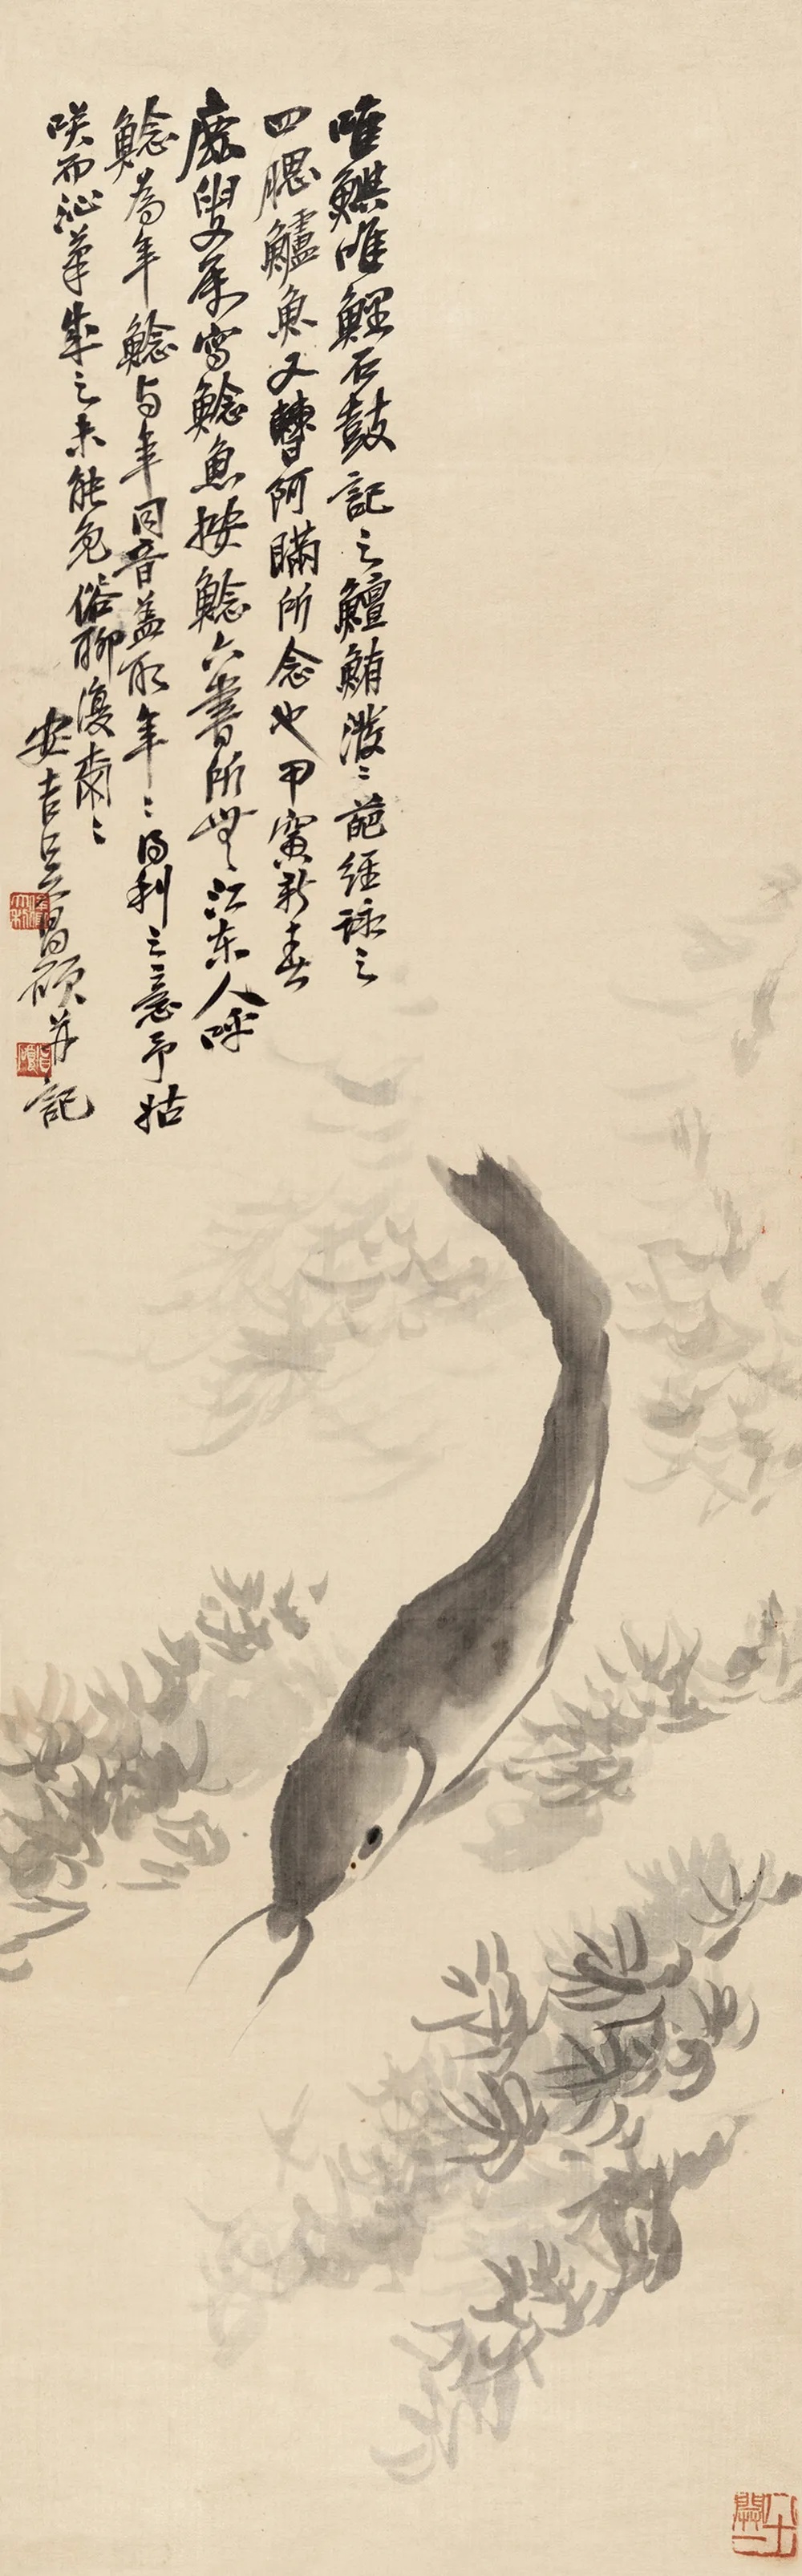 唯鱮唯鯉石鼓記之鱣鮪潑〻葩經詠之
四腮鱸魚又曹阿瞞所念也甲寅新春
叟屬寫鯰魚按鯰六書所無江東人呼
鯰為年鯰与年同音蓋取年〻得利之意予姑
咲而泚筆成之未能免俗聊復爾〻
安吉吳昌碩并記